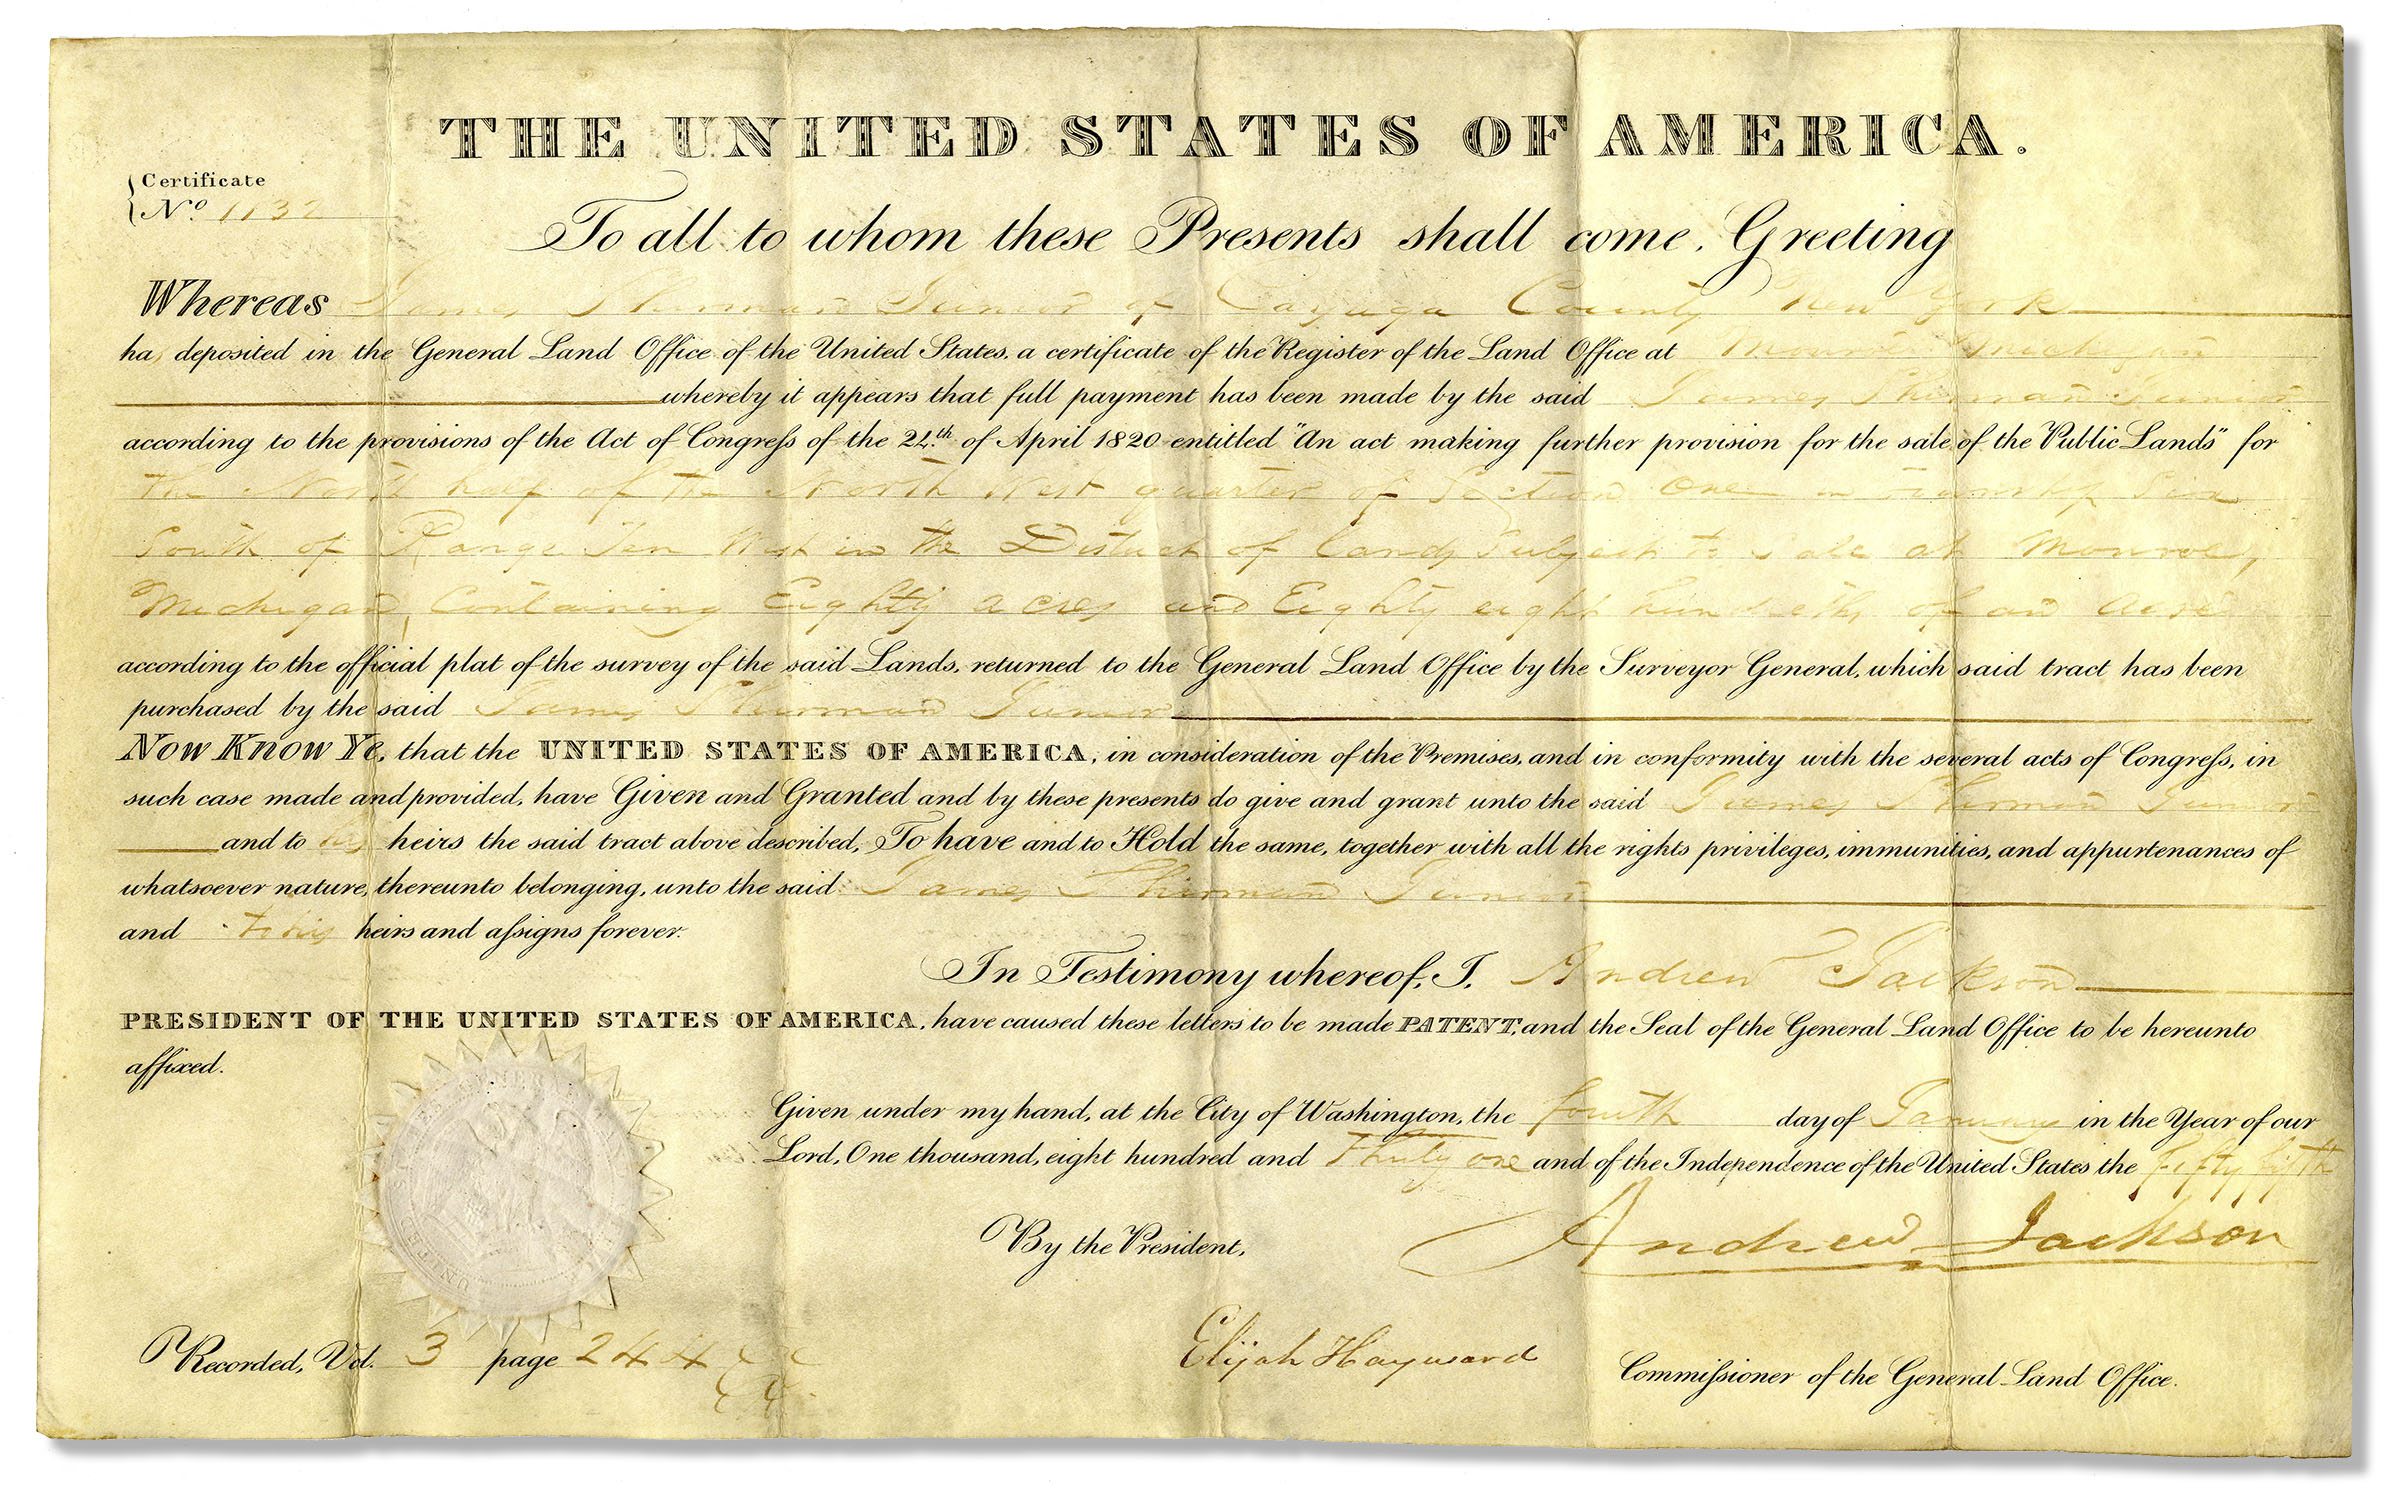 THE UNITED STATES OF AMERICA.
Certificate
No. 1132
To all to whom these Presents shall come, Greeting
Whereas James Sherman Junior of Cayuga County New York
has deposited in the General Land Office of the United States, a certificate of the Register of the Land Office at Monroe Michigan
whereby it appears that full payment has been made by the said James Sherman Junior
according to the provisions of the Act of Congress of the 24th of April 1820 entitled "An act making further provision for the sale of the Public Lands" for
the North half of the North West quarter of Section One in Township Six
South of Range Ten West in the District of lands subject to sale at Monroe,
Michigan, Containing Eighty acres and Eighty eight hundredths of an acre
according to the official plat of the survey of the said Lands, returned to the General Land Office by the Surveyor General, which said tract has been
purchased by the said James Sherman Junior
Now Know Ye, that the UNITED STATES OF AMERICA, in consideration of the Premises, and in conformity with the several acts of Congress, in
such case made and provided, have Given and Granted and by these presents do give and grant unto the said James Sherman Junior
and to his heirs the said tract above described, To have and to Hold the same, together with all the rights privileges, immunities, and appurtenances of
whatsoever nature, thereunto belonging, unto the said James Sherman Junior
and to his heirs and assigns forever.
In Testimony whereof, I, Andrew Jackson
PRESIDENT OF THE UNITED STATES OF AMERICA, have caused these letters to be made PATENT, and the Seal of the General Land Office to be hereunto
affixed.
Given under my hand, at the City of Washington, the fourth day of January in the Year of our
Lord, One thousand, eight hundred and Thirty one and of the Independence of the United States the fifty fifth
By the President, Andrew Jackson
Elijah Hayward Commissioner of the General Land Office.
Recorded, Vol. 3 page 244